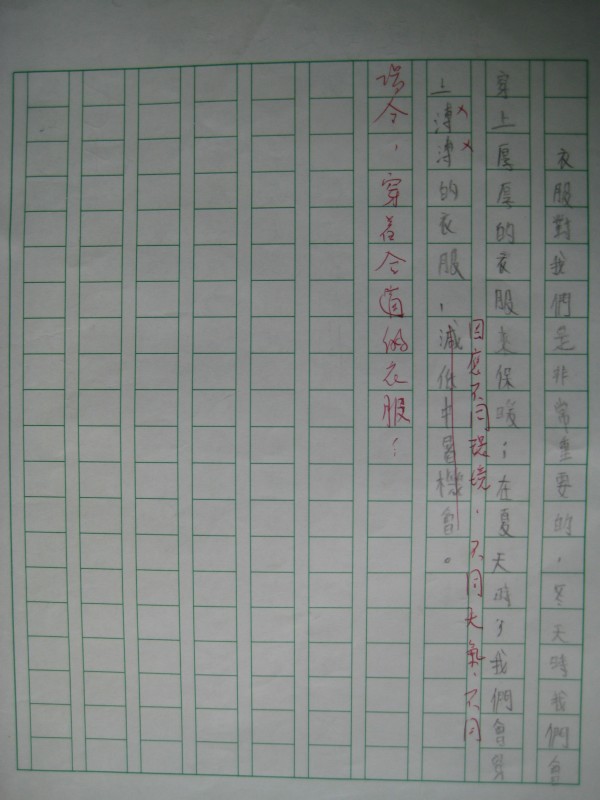 衣服對我們是非常重要的，冬天時我們會
穿上厚厚的衣服來保暖；在夏天時，我們會穿
上溥溥的衣服，減低中暑機會。
因應不同環境，不同天氣，不同
場合，穿着合適的衣服！